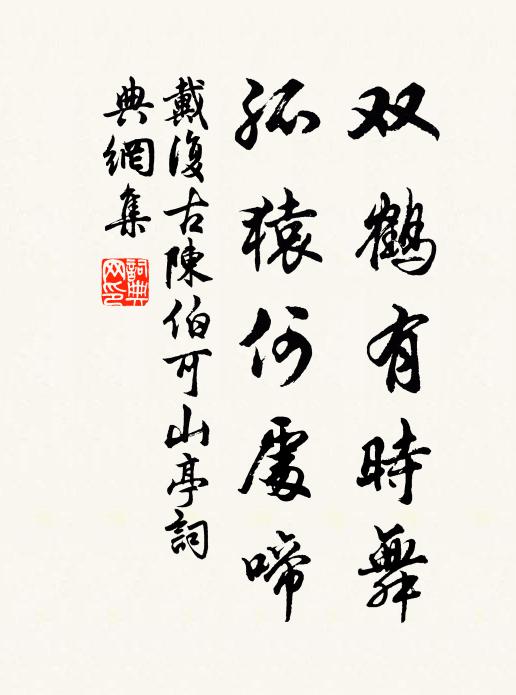 双鹤有時舞
孤猿何處啼
戴復古陳伯可山亭詞
典網集
詞典
网印